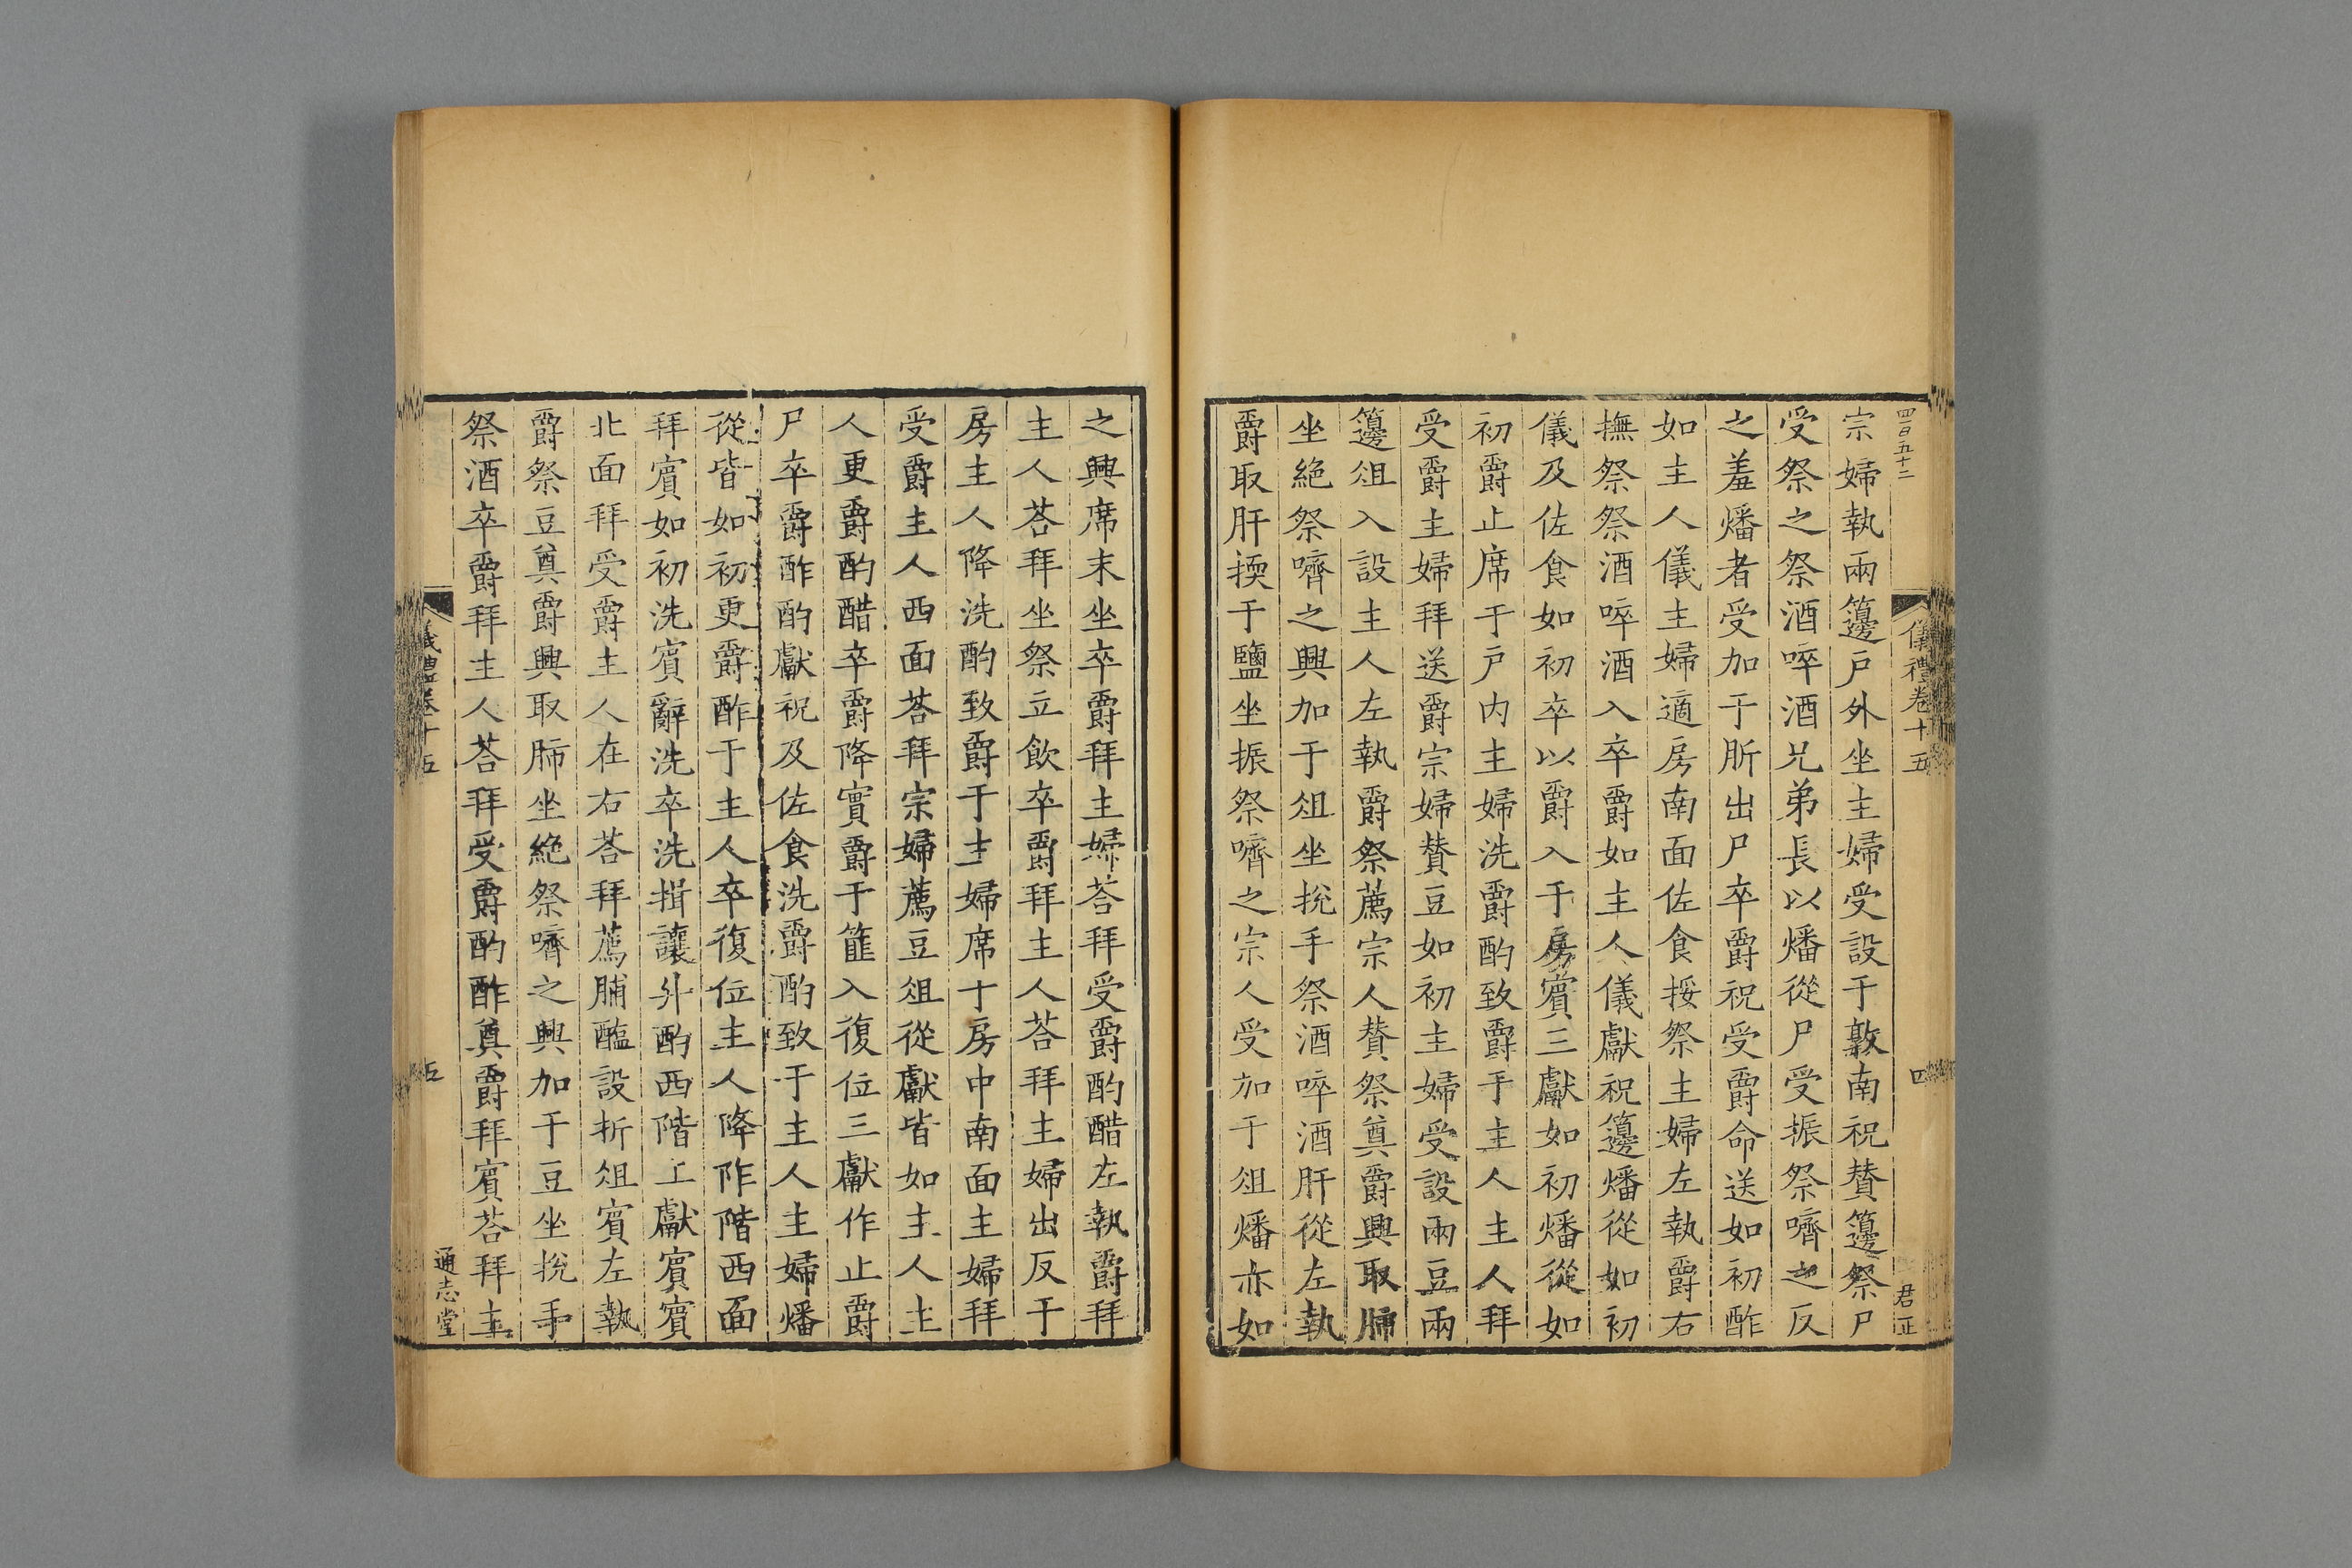 四百五十二
儀禮卷十五
四
君正
宗婦執兩籩戶外坐主婦受設于敦南祝贊籩祭尸
受祭之祭酒啐酒兄弟長以燔從尸受振祭嚌之反
之羞燔者受加于肵出尸卒爵祝受爵命送如初酢
如主人儀主婦適房南面佐食挼祭主婦左執爵右
撫祭祭酒啐酒入卒爵如主人儀獻祝籩燔從如初
儀及佐食如初卒以爵入于房賓三獻如初燔從如
初爵止席于戶內主婦洗爵酌致爵于主人主人拜
受爵主婦拜送爵宗婦贊豆如初主婦受設兩豆兩
籩俎入設主人左執爵祭薦宗人贊祭奠爵興取肺
坐絕祭嚌之興加于俎坐挩手祭酒啐酒肝從左執
爵取肝擩于鹽坐振祭嚌之宗人受加于俎燔亦如
之興席末坐卒爵拜主婦荅拜受爵酌醋左執爵拜
主人荅拜坐祭立飲卒爵拜主人荅拜主婦出反于
房主人降洗酌致爵于主婦席于房中南面主婦拜
受爵主人西面荅拜宗婦薦豆俎從獻皆如主人主
人更爵酌醋卒爵降實爵于篚入復位三獻作止爵
尸卒爵酢酌獻祝及佐食洗爵酌致于主人主婦燔
從皆如初更爵酢于主人卒復位主人降阼階西面
拜賓如初洗賓辭洗卒洗揖讓升酌西階上獻賓賓
北面拜受爵主人在右荅拜薦脯醢設折俎賓左執
爵祭豆奠爵興取肺坐絕祭嚌之興加于豆坐挩手
祭酒卒爵拜主人荅拜受爵酌酢奠爵拜賓荅拜主
儀禮卷十五
五
通志堂